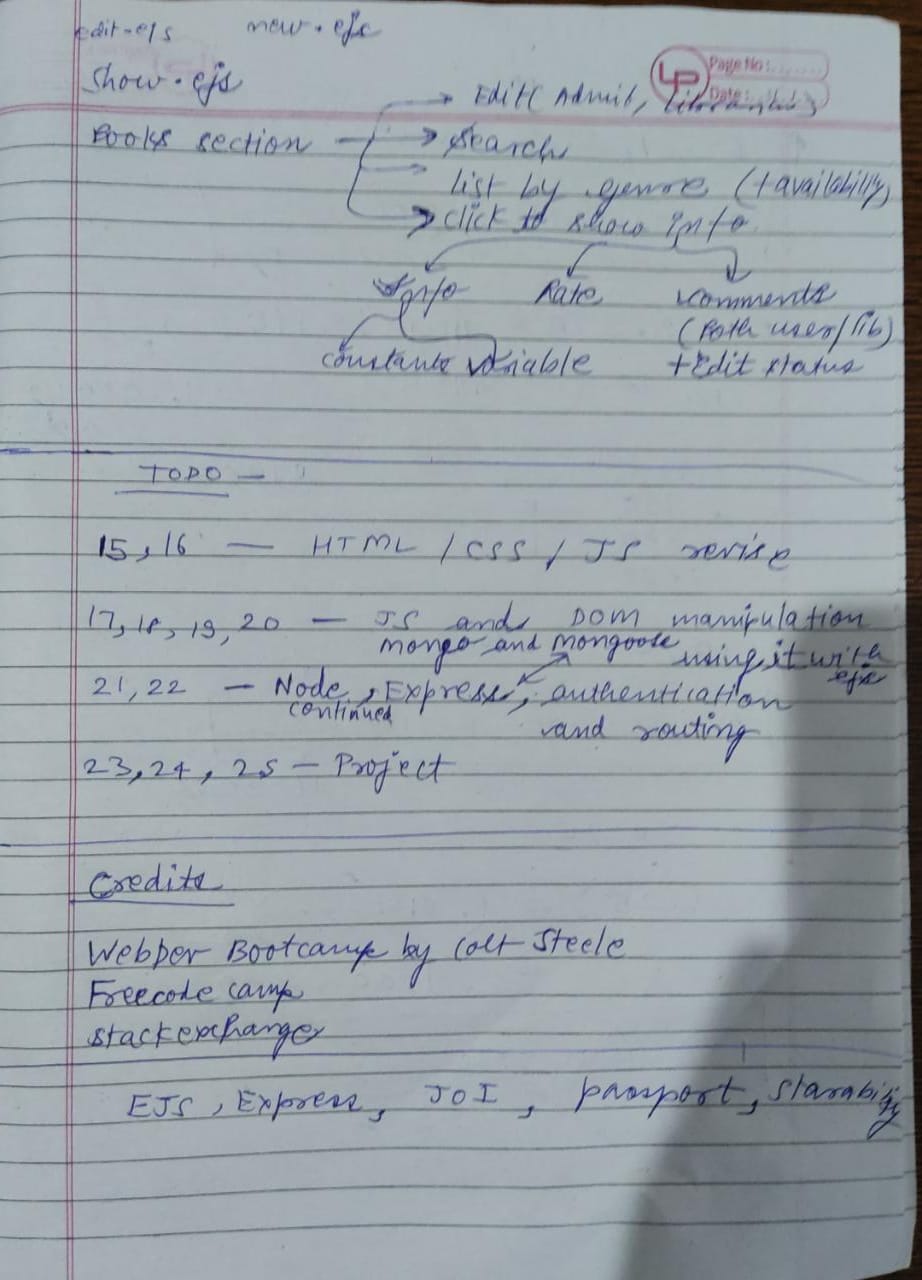 edit-ejs new.ejs
Show.ejs
Page No:
Date:
Edit( Admin, librarians
Books section
Search
list by genre (+availability)
click to show info
Info Rate comments
(both user/lib)
constants variable +Edit status
TODO —
15, 16 — HTML / CSS / JS revise
17, 18, 19, 20 — JS and DOM manipulation
mongo and mongoose using it with
ejs
21, 22 — Node, Express, authentication
continued
and routing
23, 24, 25 — Project
Credits
Webber Bootcamp by Colt Steele
Freecode camp
stackexchange
EJS, Express, JOI, passport, Starability